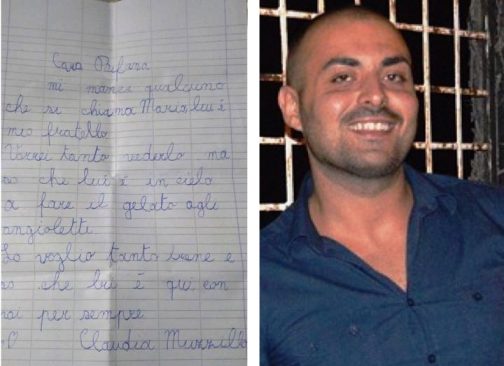 Cara Befana
mi manca qualcuno
che si chiama Mario lui è
mio fratello
Vorrei tanto vederlo ma
so che lui è in cielo
a fare il gelato agli
angioletti
Lo voglio tanto bene e
so che lui è qui con
noi per sempre
Claudia Muzzillo